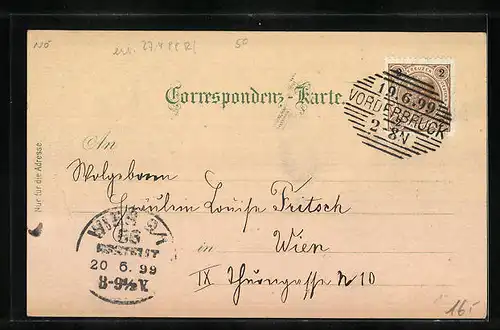 Correspondenz-Karte.
2 2
19.6.99
VORDERBRUCK
2-8N
An
Wolgeboren
Fräulein Louise Fritsch
in
Wien
IX Thurngasse N 10
Nur für die Adresse
WIEN 9/1
BESTELLT
20 6.99
8-9½V.
16.-
50